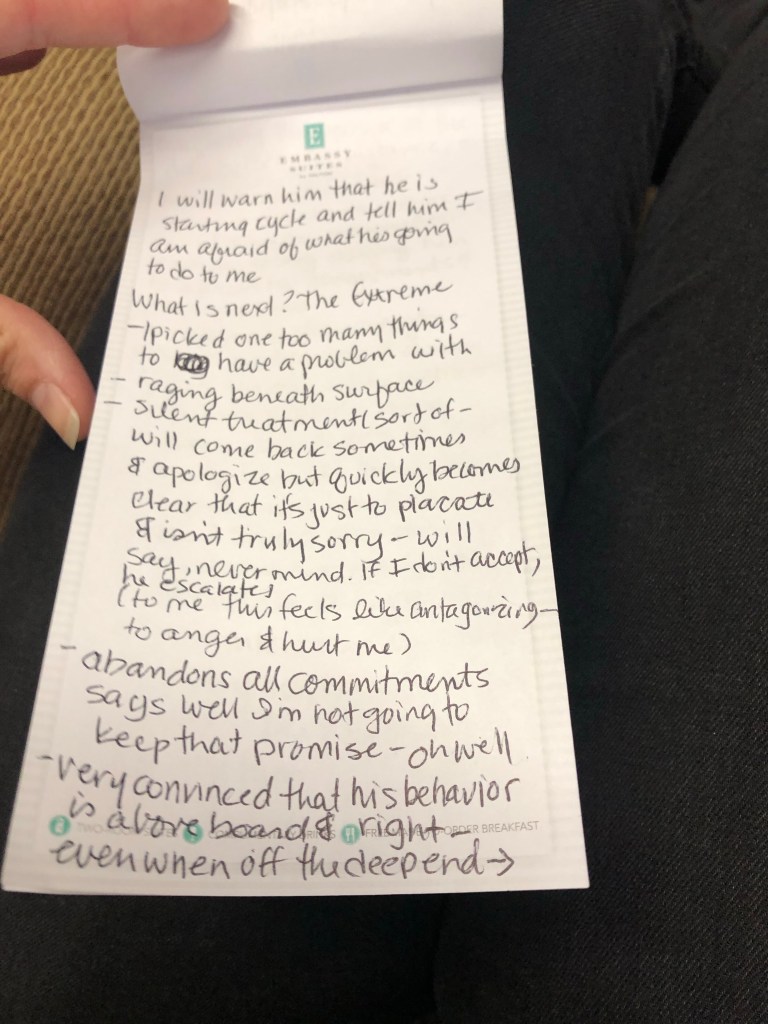 E
EMBASSY
SUITES
I will warn him that he is
starting cycle and tell him I
am afraid of what he's going
to do to me
What is next? The Extreme
- I picked one too many things
to have a problem with
- raging beneath surface
- silent treatment (sort of -
will come back sometimes
& apologize but quickly becomes
clear that it's just to placate
& isn't truly sorry - will
say, never mind. If I don't accept,
he escalates
(to me this feels like antagonizing -
to anger & hurt me)
- abandons all commitments
says well I'm not going to
keep that promise - oh well
- very convinced that his behavior
is above board & right -
ORDER BREAKFAST
even when off the deep end →